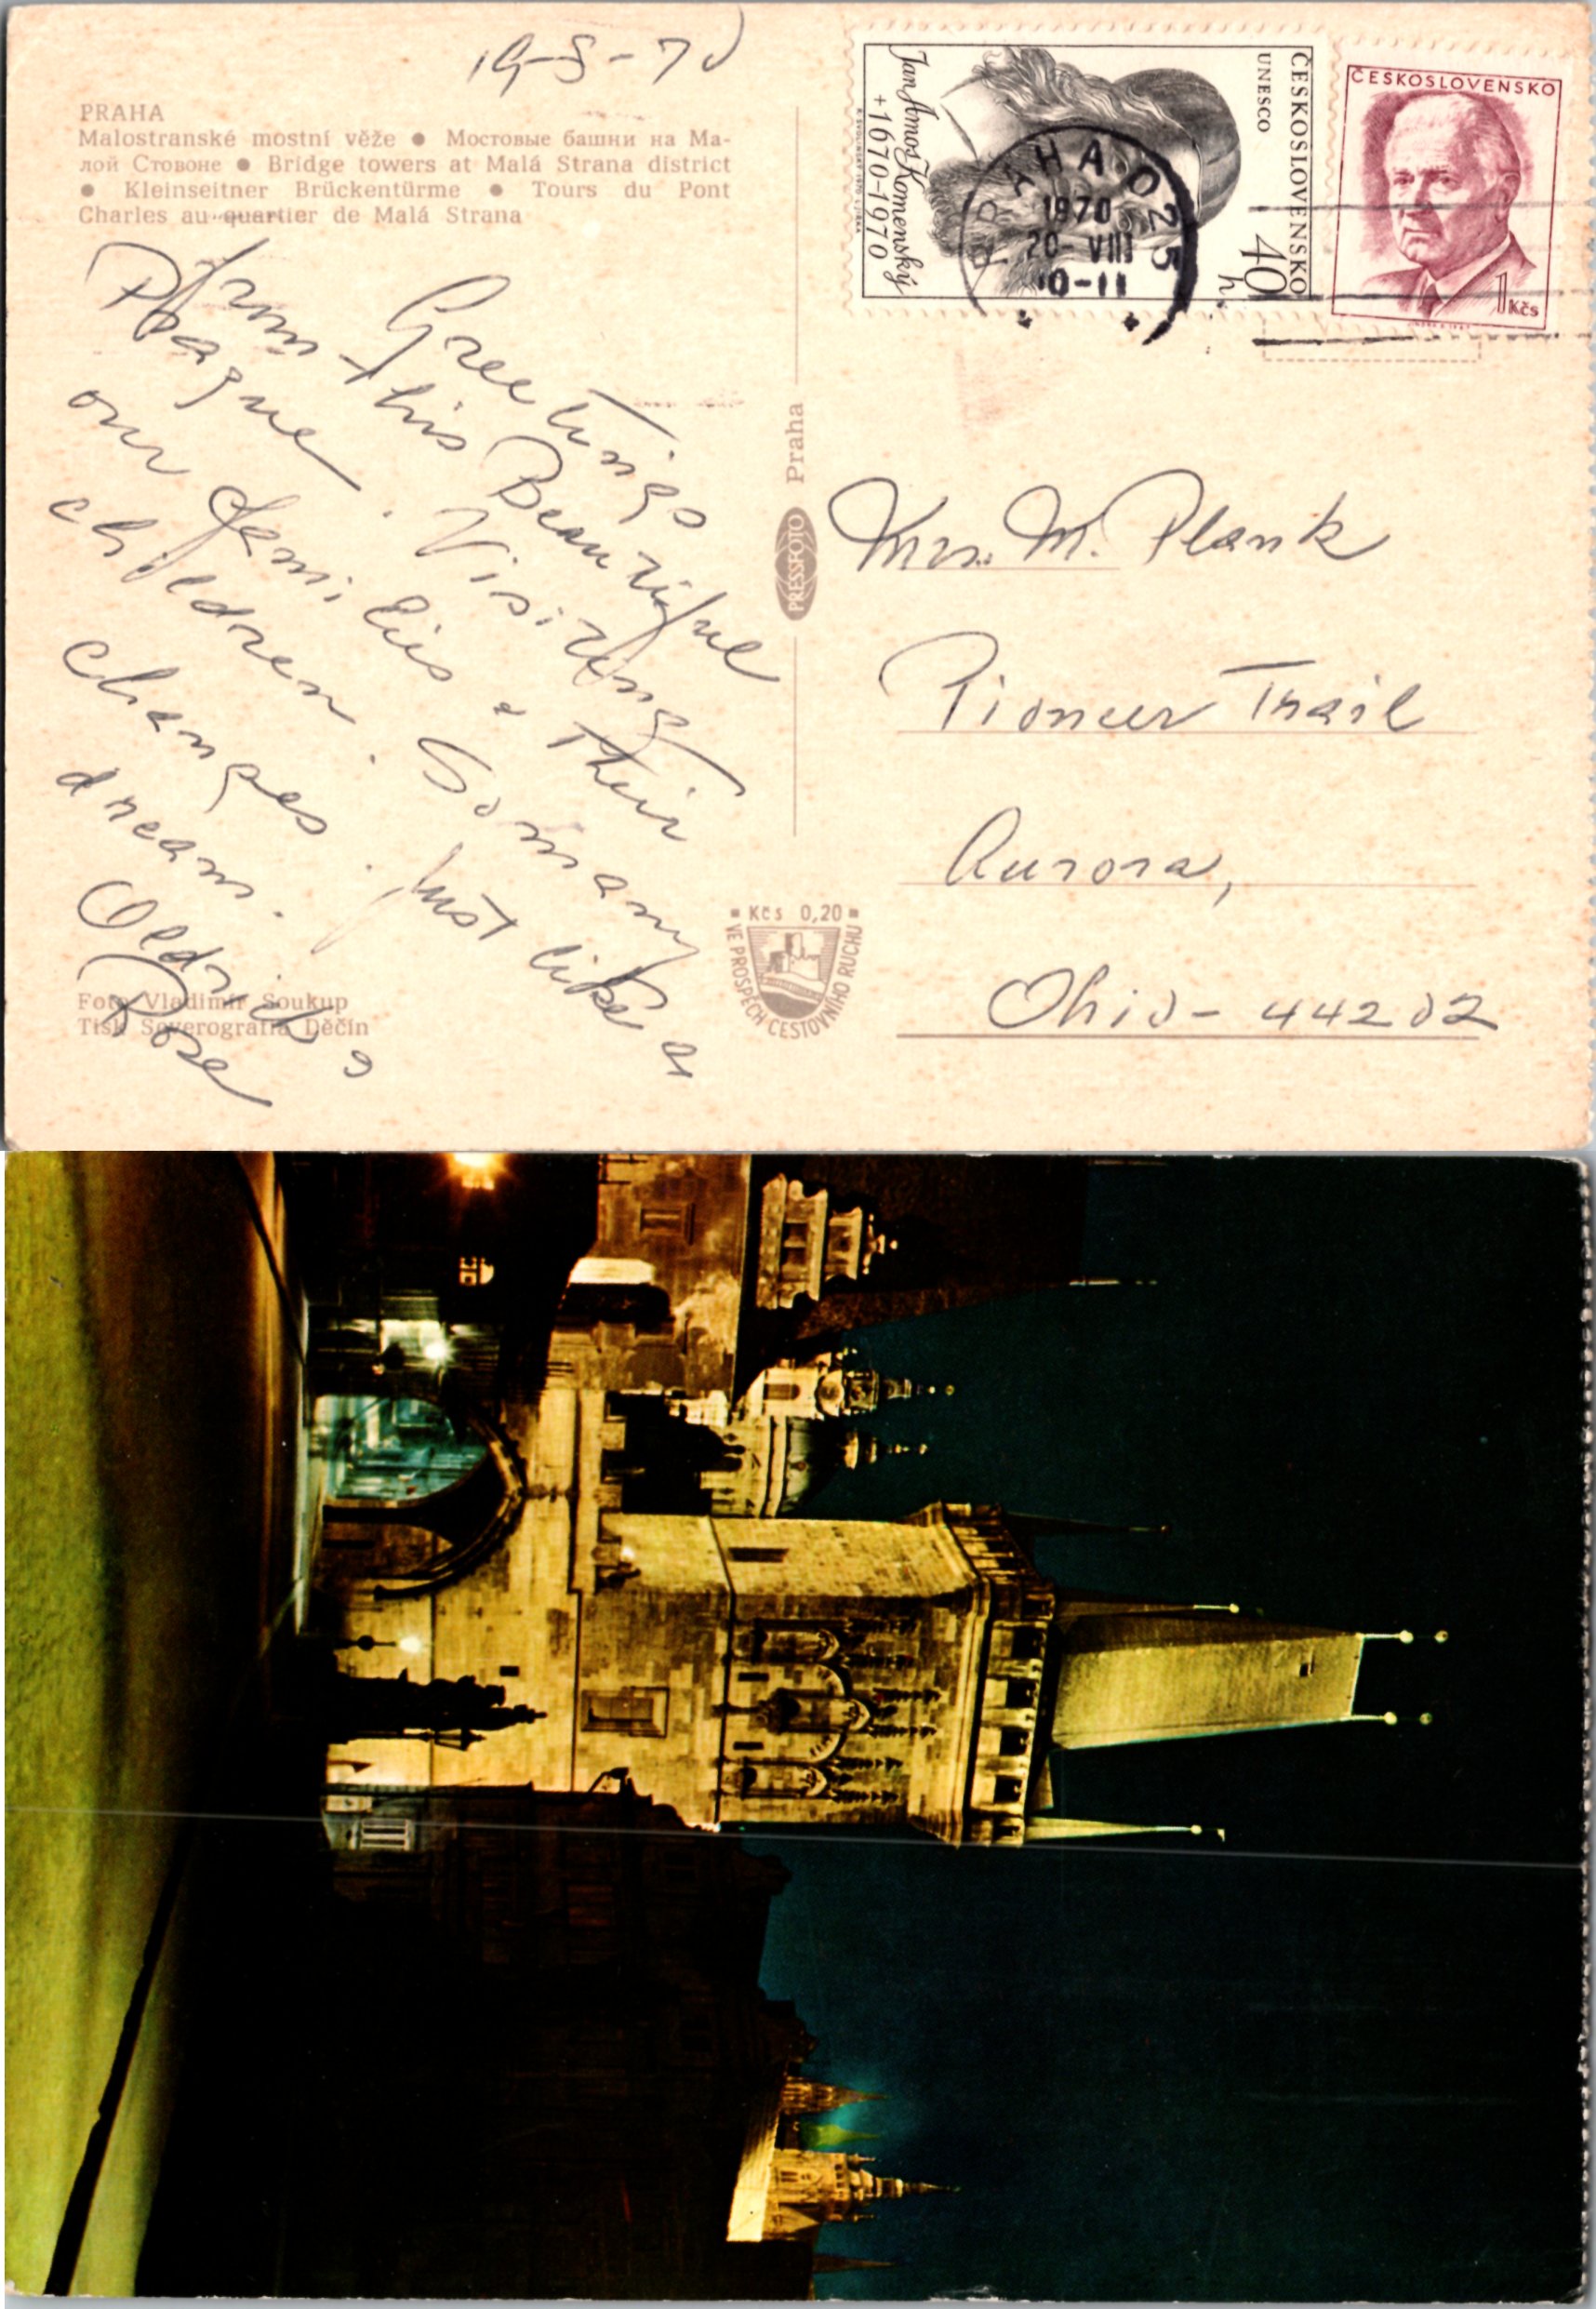 19-8-70
PRAHA
Malostranské mostní věže ● Мостовые башни на Ма-
лой Стовоне ● Bridge towers at Malá Strana district
● Kleinseitner Brückentürme ● Tours du Pont
Charles au quartier de Malá Strana
Greetings
from this Beautiful
Prague. Visiting
our Families & their
children. So many
changes. Just like a
dream.
Oldrich &
Rose
Foto Vladimír Soukup
Tisk Severografia Děčín
PRESSFOTO Praha
Kčs 0,20
VE PROSPĚCH CESTOVNÍHO RUCHU
ČESKOSLOVENSKO
UNESCO
40 h
Jan Amos Komenský
+1670-1970
ČESKOSLOVENSKO
1 Kčs
PRAHA 025
1970
20-VIII
10-11
Mrs. M. Plank
Pioneer Trail
Aurora,
Ohio - 44202